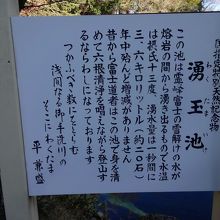 特別天然記念物
湧玉池
この池は霊峰富士の雪解けの水が
熔岩の間から湧き出るもので水温
は摂氏十三度、湧水量は一秒間に
三・六キロリットル(約二〇石)
年中殆んど増減がありません
昔から富士道者はこの池で身を清
めて六根清浄を唱えながら登山す
るならわしになっております
つかふべき数にをとらむ
浅間なる御手洗川の
そこにわく玉
平兼盛